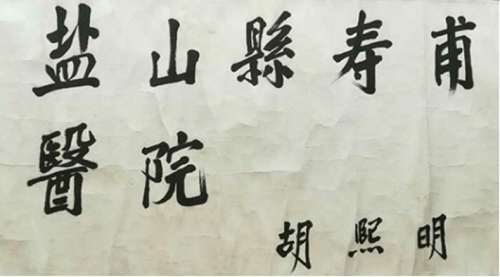 盐山縣寿甫
醫院
胡熙明